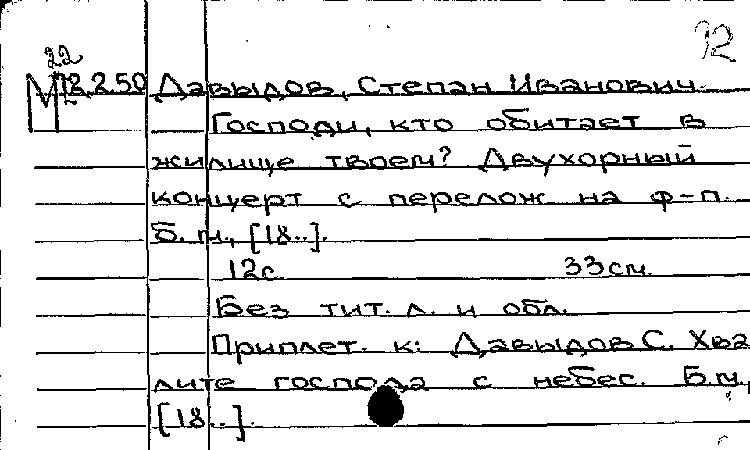 92
22
М 12.2.50 Давыдов, Степан Иванович.
Господи, кто обитает в
жилище твоем? Двухорный
концерт с перелож. на ф-п.
Б. м., [18..].
12с. 33см.
Без тит. л. и обл.
Приплет. к: Давыдов С. Хва
лите господа с небес. Б.м.,
[18..].